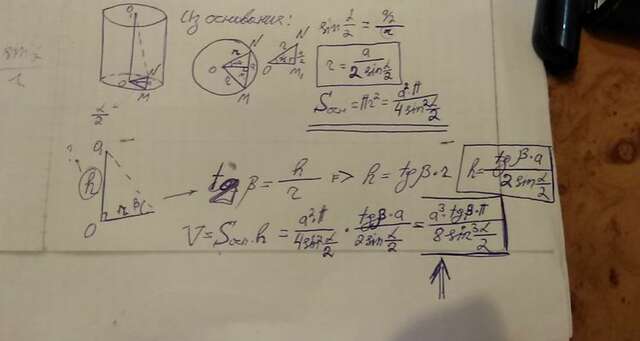 Из основания:
sin α/2 = a/2 / r
r = a / 2 sin α/2
Sосн = πr² = a²π / 4 sin² α/2
O₁
O
N
M
r
N
O
r
M
O
r
N
M₁
α/2
O₁
? h
O
r
β
tg β = h/r => h = tg β · r
h = tg β · a / 2 sin α/2
V = Sосн · h = a²π / 4 sin² α/2 · tg β · a / 2 sin α/2 = a³ · tg β · π / 8 sin³ α/2